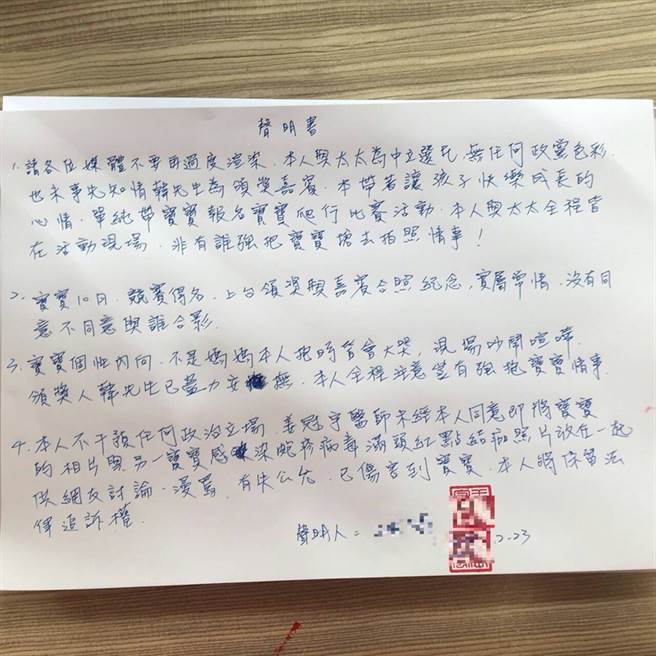 聲明書
1. 請各位媒體不要再過度渲染。本人與太太為中立選民，無任何政黨色彩.
也未事先知情韓先生為頒獎嘉賓。本帶著讓孩子快樂成長的
心情。單純帶寶寶報名寶寶爬行比賽活動。本人與太太全程皆
在活動現場，非有誰強把寶寶搶去拍照情事！
2. 寶寶10日。競賽得名，上台領獎與嘉賓合照紀念，實屬常情，沒有同
意不同意與誰合影.
3. 寶寶個性內向，不是媽媽本人抱時皆會大哭，現場吵鬧喧嘩.
頒獎人韓先生已盡力安撫，本人全程注意並有強抱寶寶情事.
4. 本人不干預任何政治立場，姜冠宇醫師未經本人同意即將寶寶
的相片與另一寶寶感染皰疹病毒滿頭紅點結痂照片放在一起
供網友討論、漫罵，有失公允，已傷害到寶寶，本人將保留法
律追訴權.
聲明人：
2-23